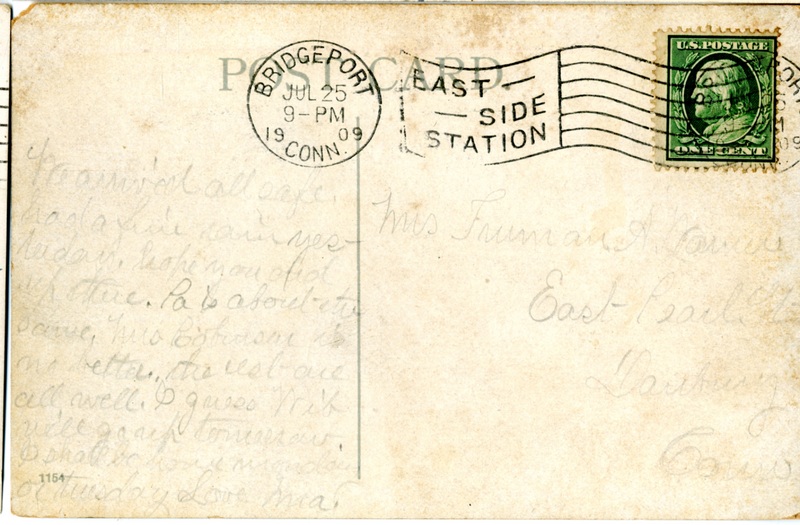 POST CARD
BRIDGEPORT
JUL 25
9-PM
19 09
CONN.
EAST
SIDE
STATION
U.S. POSTAGE
ONE CENT
all safe.
had a fine rain yes-
terday. hope you did
up there. Pa is about the
same. Mrs Robinson is
no better. the rest are
all well. I guess
will go up tomorrow.
or tuesday Love
Mrs Truman A.
East Pearl
Danbury
Conn
1154